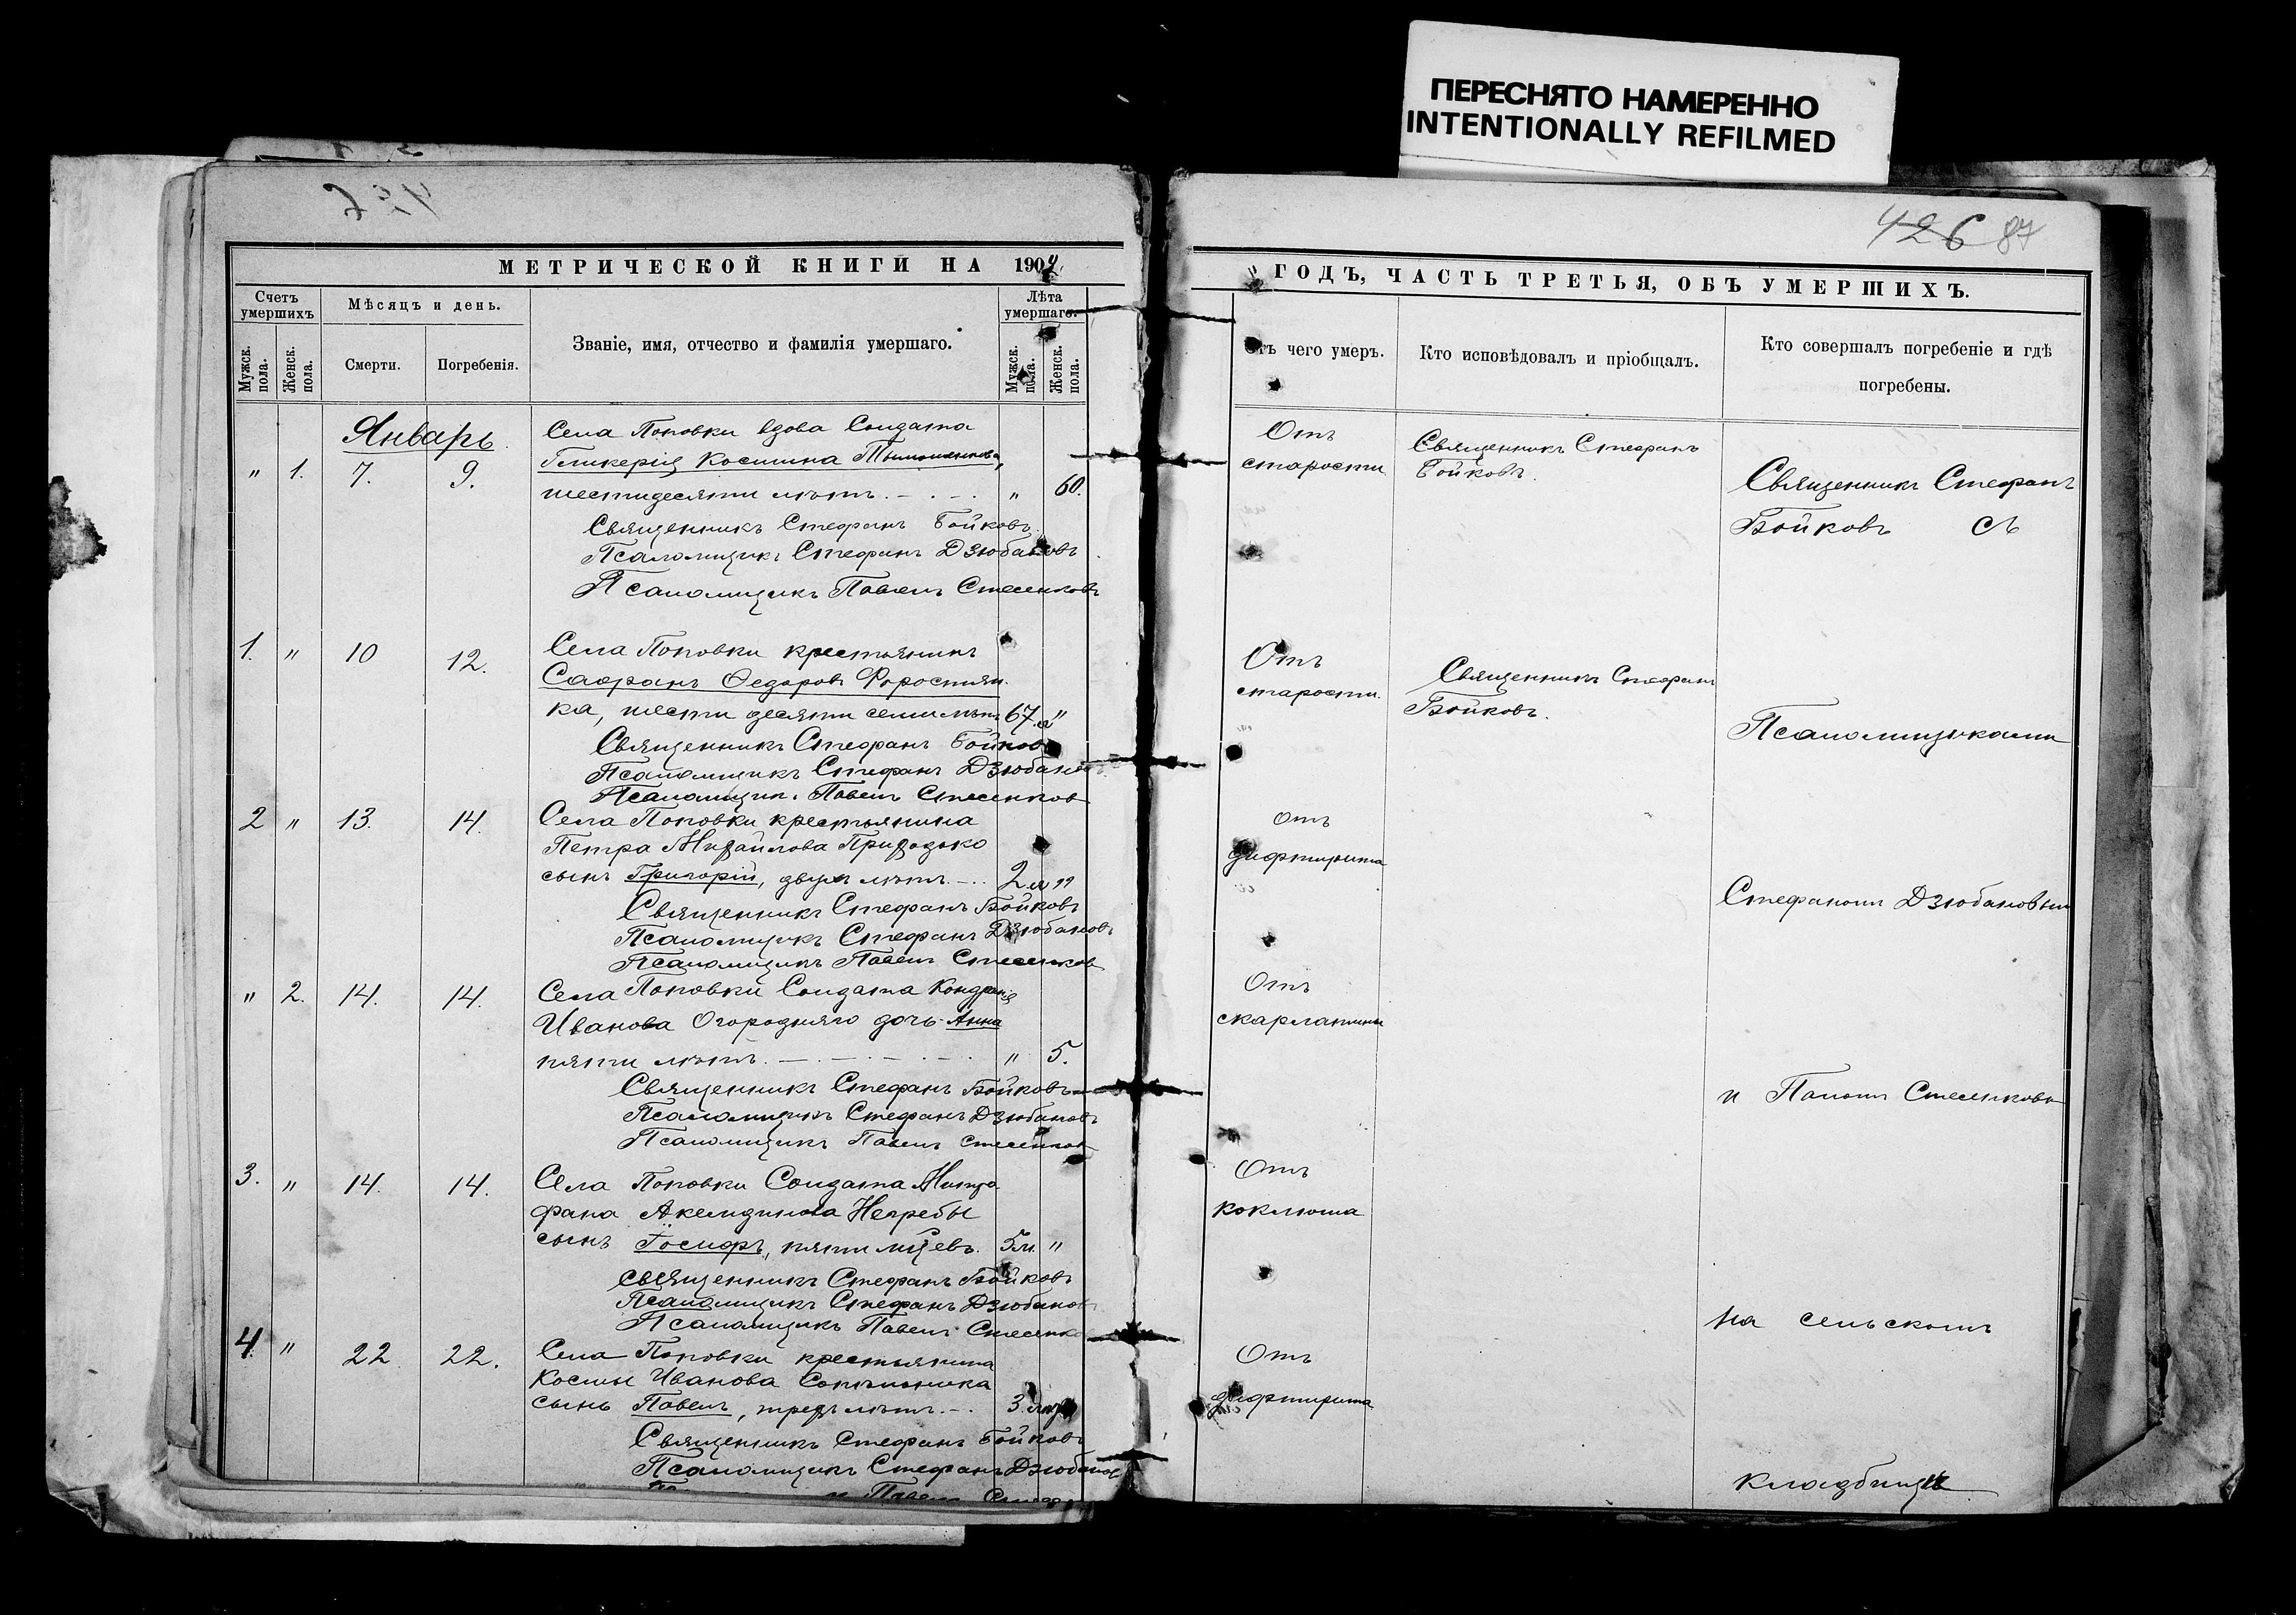 ПЕРЕСНЯТО НАМЕРЕННО
INTENTIONALLY REFILMED
426 87
МЕТРИЧЕСКОЙ КНИГИ НА 1904
Счетъ умершихъ
Мѣсяцъ и день.
Званіе, имя, отчество и фамилія умершаго.
Лѣта умершаго.
Мужск. пола.
Женск. пола.
Смерти.
Погребенія.
Мужск. пола.
Женск. пола.
Январь
Села Поповки вдова Солдата
Гликерія Космина
" 1. 7. 9.
шестидесяти лѣтъ. " 60.
Священникъ Стефанъ Бойковъ
Псаломщикъ Стефанъ Дзюбановъ
Псаломщикъ Павелъ Стесенковъ
1. " 10 12. Села Поповки крестьянинъ
Сафранъ Ѳедоровъ Форостян-
ка, шести десяти семи лѣтъ 67. "
Священникъ Стефанъ Бойковъ
Псаломщикъ Стефанъ Дзюбановъ
Псаломщик. Павелъ Стесенков
2 " 13. 14. Села Поповки крестьянина
Петра Михайлова Приходько
сынъ Григорій, двухъ лѣтъ 2 "
Священникъ Стефанъ Бойковъ
Псаломщикъ Стефанъ Дзюбановъ
Псаломщикъ Павелъ Стесенков
" 2. 14. 14. Села Поповки Солдата Кондратія
Иванова Огородняго дочь Анна
пяти лѣтъ. " 5.
Священникъ Стефанъ Бойковъ
Псаломщикъ Стефанъ Дзюбановъ
Псаломщикъ Павелъ Стесенков
3. " 14. 14. Села Поповки Солдата Митро-
фана Акендинова Негребы
сынъ Іосифъ, пяти мцевъ. 5 м. "
Священникъ Стефанъ Бойковъ
Псаломщикъ Стефанъ Дзюбанов
Псаломщикъ Павелъ Стесенко
4. " 22 22. Села Поповки крестьянина
Космы Иванова
сынъ Павелъ, трехъ лѣтъ. 3.
Священникъ Стефанъ Бойковъ
Псаломщикъ Стефанъ Дзюбанов
Павелъ
" ГОДЪ, ЧАСТЬ ТРЕТЬЯ, ОБЪ УМЕРШИХЪ.
Отъ чего умеръ.
Кто исповѣдовалъ и пріобщалъ.
Кто совершалъ погребеніе и гдѣ
погребены.
Отъ
старости
Священникъ Стефанъ
Бойковъ.
Священникъ Стефанъ
Бойковъ съ
Отъ
старости.
Священникъ Стефанъ
Бойковъ.
Псаломщиками
отъ
дифтирита
Стефаномъ Дзюбановым
Отъ
скарлатины
и Павломъ Стесенковы
Отъ
коклюша
на сельскомъ
Отъ
дифтирита
кладбищѣ